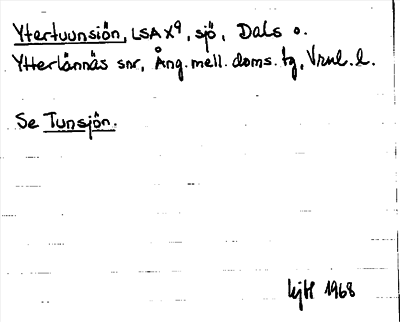 Ytertuunsiön, LSA X9, sjö, Dals o.
Ytterlännäs snr, Ång. mell. doms. tg, Vrnl. l.
Se Tunsjön.
1968